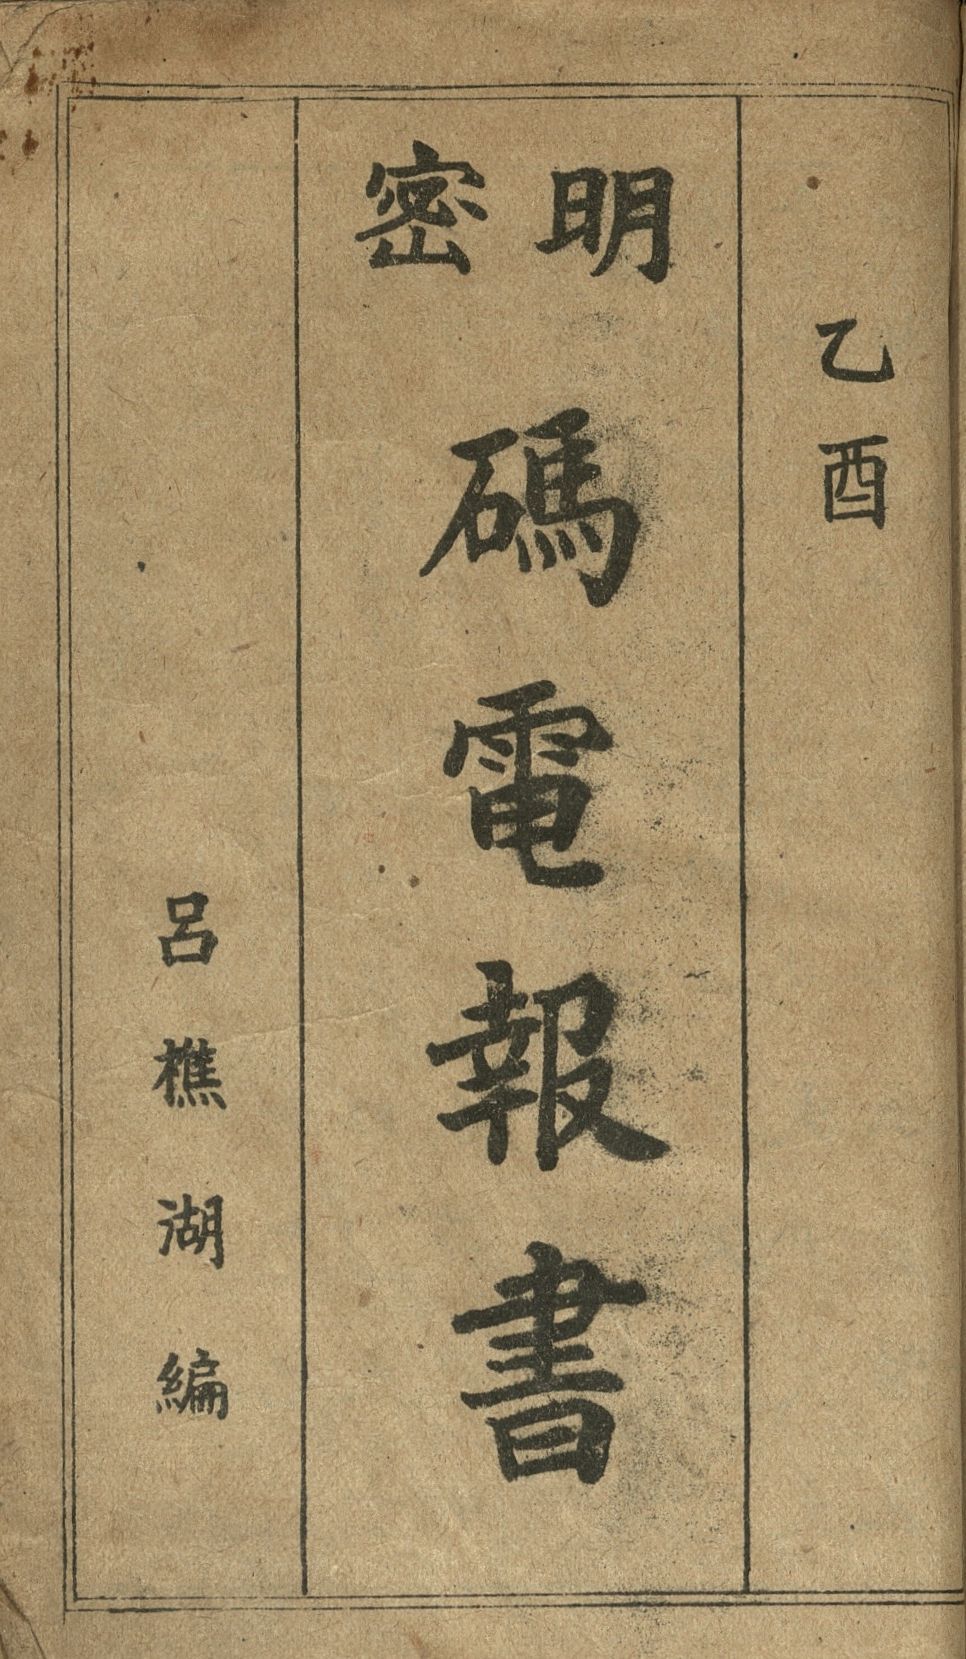 乙酉
明密碼電報書
呂樵湖編